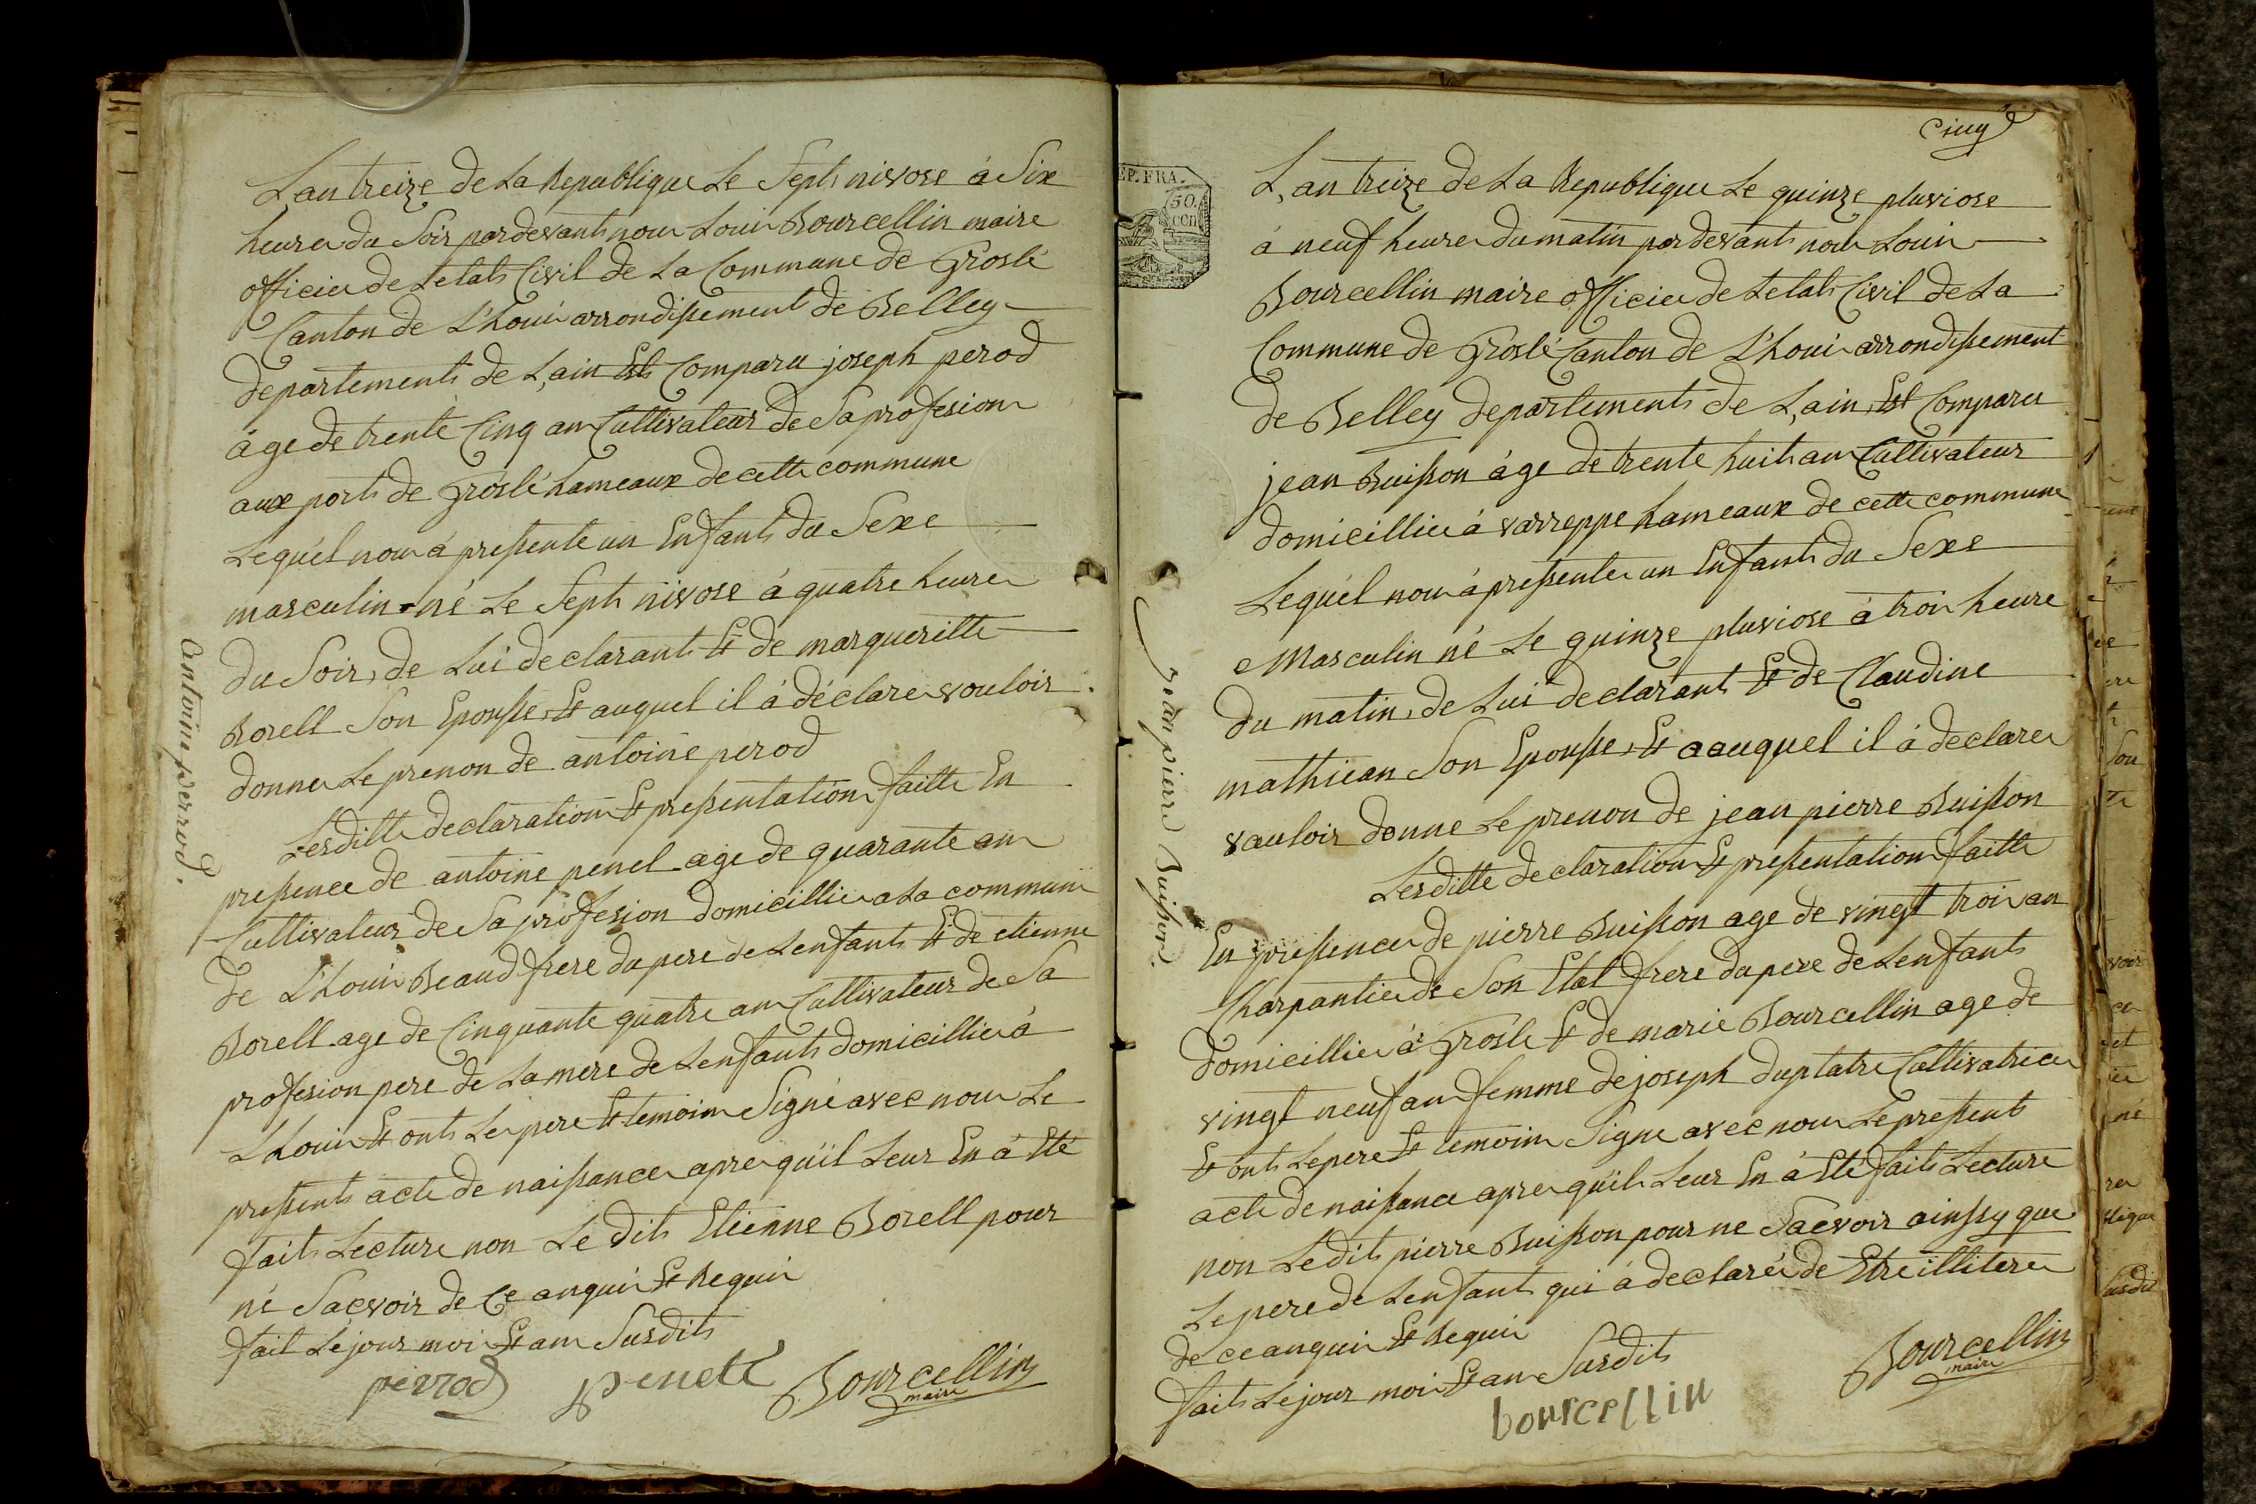 L'an treize de La Republique Le Sept nivose á Six
heures du Soir pardevant nous Louis Bourcellin maire
officier de Letat Civil de La Commune de Groslé
Canton de L'houis arrondissement de Belley
departement de L'ain Est Comparu joseph perod
áge de trente Cinq ans Cultivateur de Sa profesion
aux port de Groslé hameaux de cette commune
Lequél nous á pressente un Enfant du Sexe
masculin né Le Sept nivose á quatre heures
du Soir, de Lui declarant Et de margueritte
Borell Son Epousse, Et auquel il á déclare vouloir
donner Le prenon de antoine perod
Lesditte declaration Et pressentation faitte En
pressence de antoine penel age de quarante ans
Cultivateur de Sa profesion domicillier a La commune
de L'houis Beaud frere du pere de Lenfant Et de etienne
Borell age de Cinquante quatre ans Cultivateur de Sa
profesion pere de La mere de Lenfant domicillier á
Lhouis Et ont Les pere Et temoins Signé avec nous Le
pressent acte de naissance apres qu'il Leur En á Eté
fait Lecture non Le dit Etienne Borell pour
né Sacvoir de Ce anquis Et Requis
fait Le jour mois Et an Susdit
perrod penett Bourcellin
maire
antoine perrod.
cinq
REP. FRA.
50.
cen
L'an treize de La Republique Le quinze pluviose
á neuf heures du matin pardevant nous Louis
Bourcellin maire officier de Letat Civil de La
Commune de Groslé Canton de L'houis arrondissement
de Belley departement de L'ain, Est Comparu
jean Buisson áge de trente huit ans Cultivateur
domicillier á varreppe hameaux de cette commune
Lequél nous á pressenter un Enfant du Sexe
Masculin né Le quinze pluviose á trois heure
du matin, de Lui declarant Et de Claudine
mathieau Son Epousse, Et aauquel il á declarer
vauloir donne Le prenon de jean pierre Buisson
Lesditte declaration Et pressentation faitte
En pressences de pierre Buisson age de vingt trois an
Charpantier de Son Etat frere du pere de Lenfant
domicillier á Grosle Et de marie Bourcellin age de
vingt neuf ans femme de joseph duplatre Cultivatrice
Et ont Le pere Et temoins Signe avec nous Le pressent
acte de naissance apres qu'il Leur En á Eté fait Lecture
non Ledit pierre Buisson pour ne Sacvoir ainssy que
Le pere de Lenfant qui á declaré de Etre illitere
de ce anquis Et Requis
fait Le jour mois Et an Susdit
bourcellin Bourcellin
maire
jean pierre Buisson.